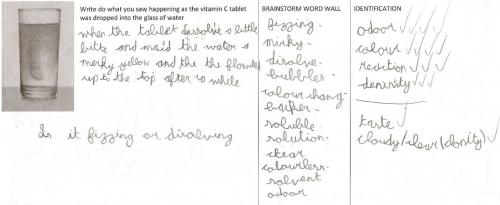 Write do what you saw happening as the vitamin C tablet
was dropped into the glass of water
when the tablet dissolve a little
bitz and maid the water a
merky yellow and the the flowded
up to the top after is while
Is it fizzing or disolving
BRAINSTORM WORD WALL
fizzing.
mirky.
disolve.
bubbles.
colour chang
beaker.
soluble
solution.
clear
colourless.
solvent.
odour
IDENTIFICATION
odour ✓✓✓✓
colour ✓✓✓✓
reaction ✓✓✓
density ✓✓✓
taste ✓
cloudy/clear (clarity) ✓✓